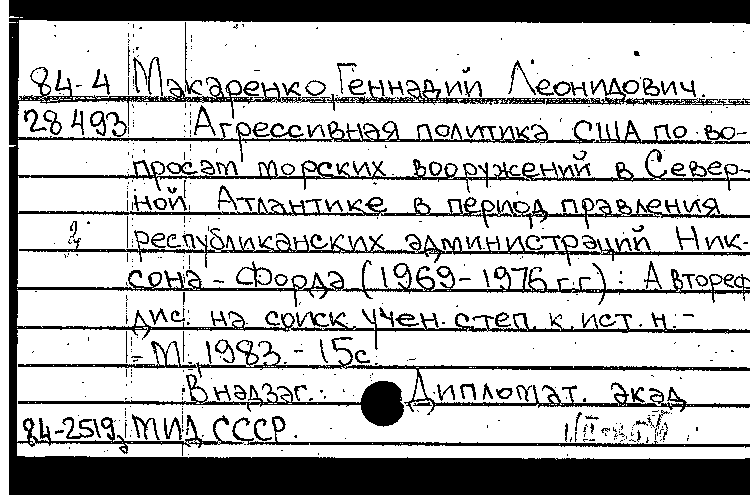 84-4 Макаренко, Геннадий Леонидович.
28493 Агрессивная политика США по во-
просам морских вооружений в Север-
ной Атлантике в период правления
республиканских администраций Ник-
сона - Форда (1969-1976 г.г.): Автореф
дис. на соиск. учен. степ. к. ист. н. -
- М., 1983. - 15с
В надзаг.: Дипломат. акад
84-2519, МИД СССР.